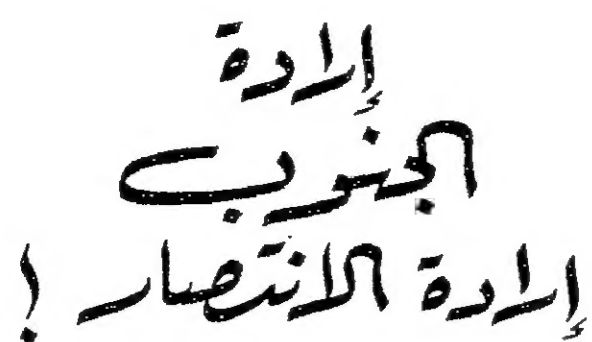 إرادة
الجنوب
إرادة الانتصار !